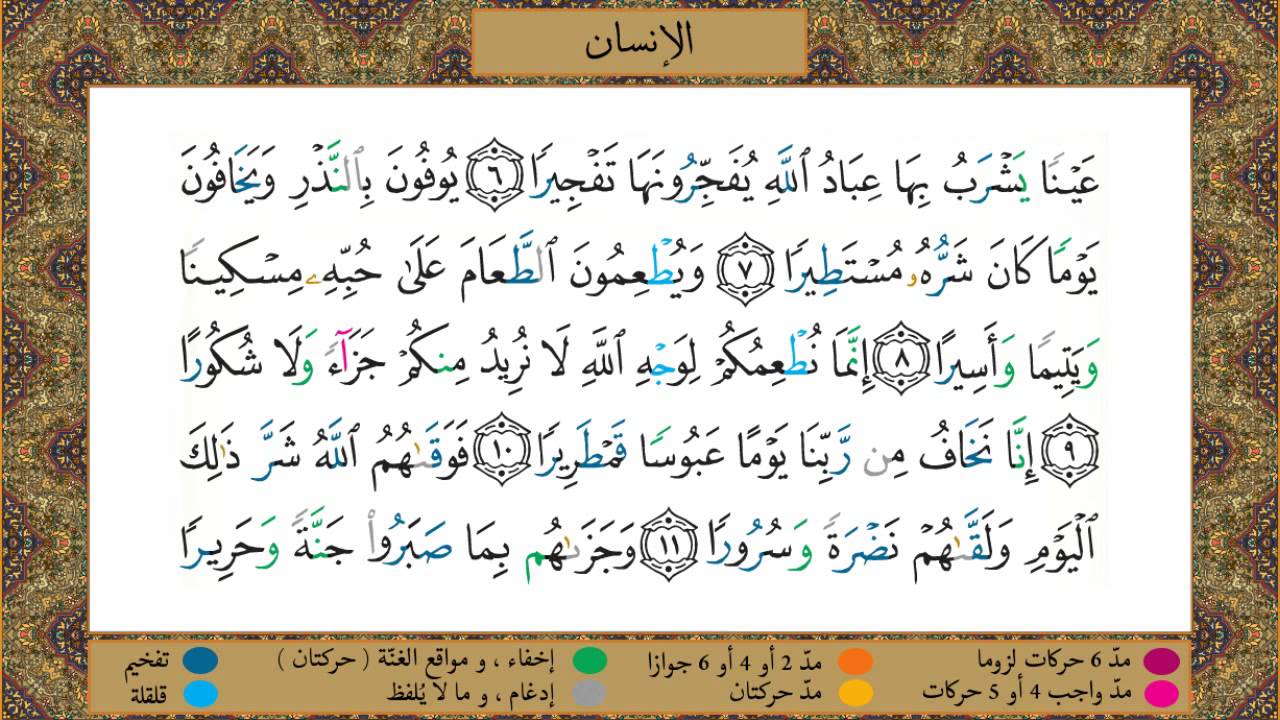 الإنسان
عَيْنًا يَشْرَبُ بِهَا عِبَادُ ٱللَّهِ يُفَجِّرُونَهَا تَفْجِيرًا ٦ يُوفُونَ بِٱلنَّذْرِ وَيَخَافُونَ
يَوْمًا كَانَ شَرُّهُۥ مُسْتَطِيرًا ٧ وَيُطْعِمُونَ ٱلطَّعَامَ عَلَىٰ حُبِّهِۦ مِسْكِينًا
وَيَتِيمًا وَأَسِيرًا ٨ إِنَّمَا نُطْعِمُكُمْ لِوَجْهِ ٱللَّهِ لَا نُرِيدُ مِنكُمْ جَزَآءً وَلَا شُكُورًا
٩ إِنَّا نَخَافُ مِن رَّبِّنَا يَوْمًا عَبُوسًا قَمْطَرِيرًا ١٠ فَوَقَىٰهُمُ ٱللَّهُ شَرَّ ذَٰلِكَ
ٱلْيَوْمِ وَلَقَّىٰهُمْ نَضْرَةً وَسُرُورًا ١١ وَجَزَىٰهُم بِمَا صَبَرُوا۟ جَنَّةً وَحَرِيرًا
مدّ 6 حركات لزوما مدّ 2 أو 4 أو 6 جوازا إخفاء ، و مواقع الغنّة ( حركتان ) تفخيم
مدّ واجب 4 أو 5 حركات مدّ حركتان إدغام ، و ما لا يُلفظ قلقلة